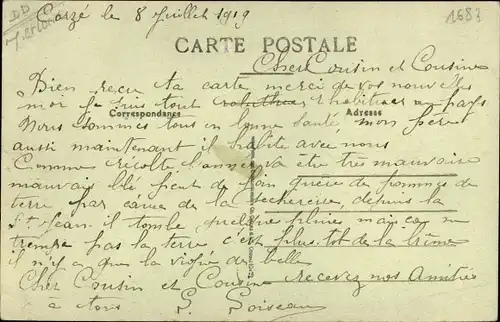 Corzé le 8 Juillet 1919
1683
CARTE POSTALE
Cher Cousin et Cousine
Bien reçu ta carte merci de vos nouvelles
moi je suis tout habituer au pays
Correspondance
Adresse
Nous sommes tous en bonne santé, mon père
aussi maintenant il habite avec nous
Comme récolte l'année va etre très mauvaise
mauvais blé, peut de foin guère de pommes de
terre par cause de la secheresse, depuis la
St Jean il tombe quelque pluies mais ça ne
trempe pas la terre, c'est plus tot de la brume
il n'y a que la vigne de belle
Cher Cousin et Cousine recevez nos Amitiés
à tous
S. Soiseau